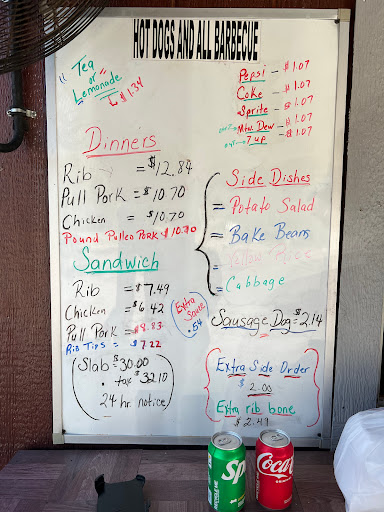 HOT DOGS AND ALL BARBECUE
Tea
or
Lemonade
$1.34
Pepsi - $1.07
Coke - $1.07
Sprite - $1.07
Mtn. Dew - $1.07
7 up - $1.07
Dinners
Rib = $12.84
Pull Pork = $10.70
Chicken = $10.70
Pound Pulled Pork $10.70
Side Dishes
= Potato Salad
= Bake Beans
= Yellow Rice
= Cabbage
Sandwich
Rib = $7.49
Chicken = $6.42
Pull Pork = $8.83
Rib Tips = $7.22
Extra
Sauce
.54
Sausage Dog = $2.14
Slab = $30.00
. tax $32.10
24 hr. notice
Extra Side Order
$ 2.00
Extra rib bone
$2.49
Sp
Coca